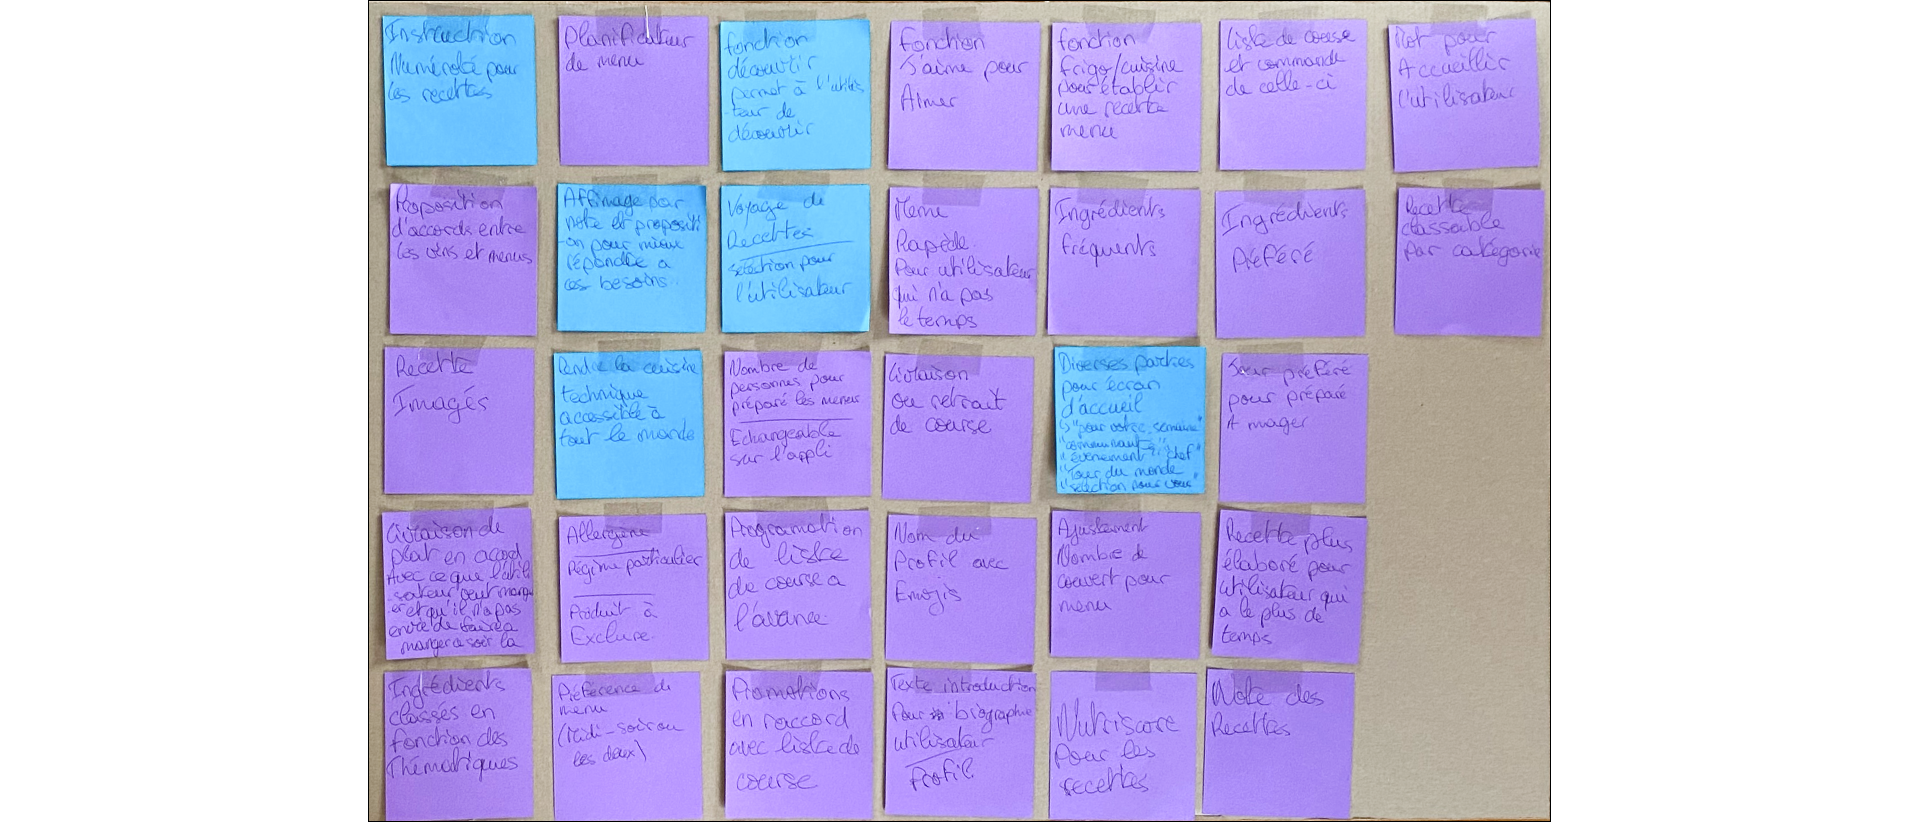 Instruction
Numéroté pour
les recettes
Planificateur
de menu
fonction
découvrir
permet à l'utilisa
-teur de
découvrir
Fonction
J'aime pour
Aimer
fonction
frigo/cuisine
pour établir
une recette
menu
liste de course
et commande
de celle-ci
Mot pour
Accueillir
l'utilisateur
Proposition
d'accords entre
les vins et menus
Affinage par
note et propositi
-on pour mieux
répondre a
ces besoins..
Voyage de
Recettes
selection pour
l'utilisateur
Menu
Rapide
Pour utilisateur
qui n'a pas
le temps
Ingrédients
fréquents
Ingrédients
Préféré
Recette
classable
Par catégorie
Recette
Imagés
Rendre la cuisine
technique
accessible à
tout le monde
Nombre de
personnes pour
préparé les menus
Echangeable
sur l'appli
Livraison
ou retrait
de course
Diverses parties
pour écran
d'accueil
↳"pour votre semaine"
"communauté"
"évènement" "chef"
"Tour du monde
"selection pour vous"
Jour préféré
pour préparé
A manger
Livraison de
plat en acord
Avec ce que l'utili
-sateur veut mang
-er et qu'il n'a pas
envie de faire a
manger ce soir la
Allergène
Régime particulier
Produit à
Exclure.
Programation
de liste
de course a
l'avance
Nom du
Profil avec
Emojis
Ajustement
Nombre de
couvert pour
menu
Recette plus
élaboré pour
utilisateur qui
a le plus de
temps
Ingrédients
classés en
fonction des
Thématiques
Préférence du
menu
(Midi-soir ou
les deux)
Promotions
en raccord
avec liste de
course
Texte introduction
Pour biographie
utilisateur
Profil
Nutriscore
Pour les
recettes
Note des
Recettes